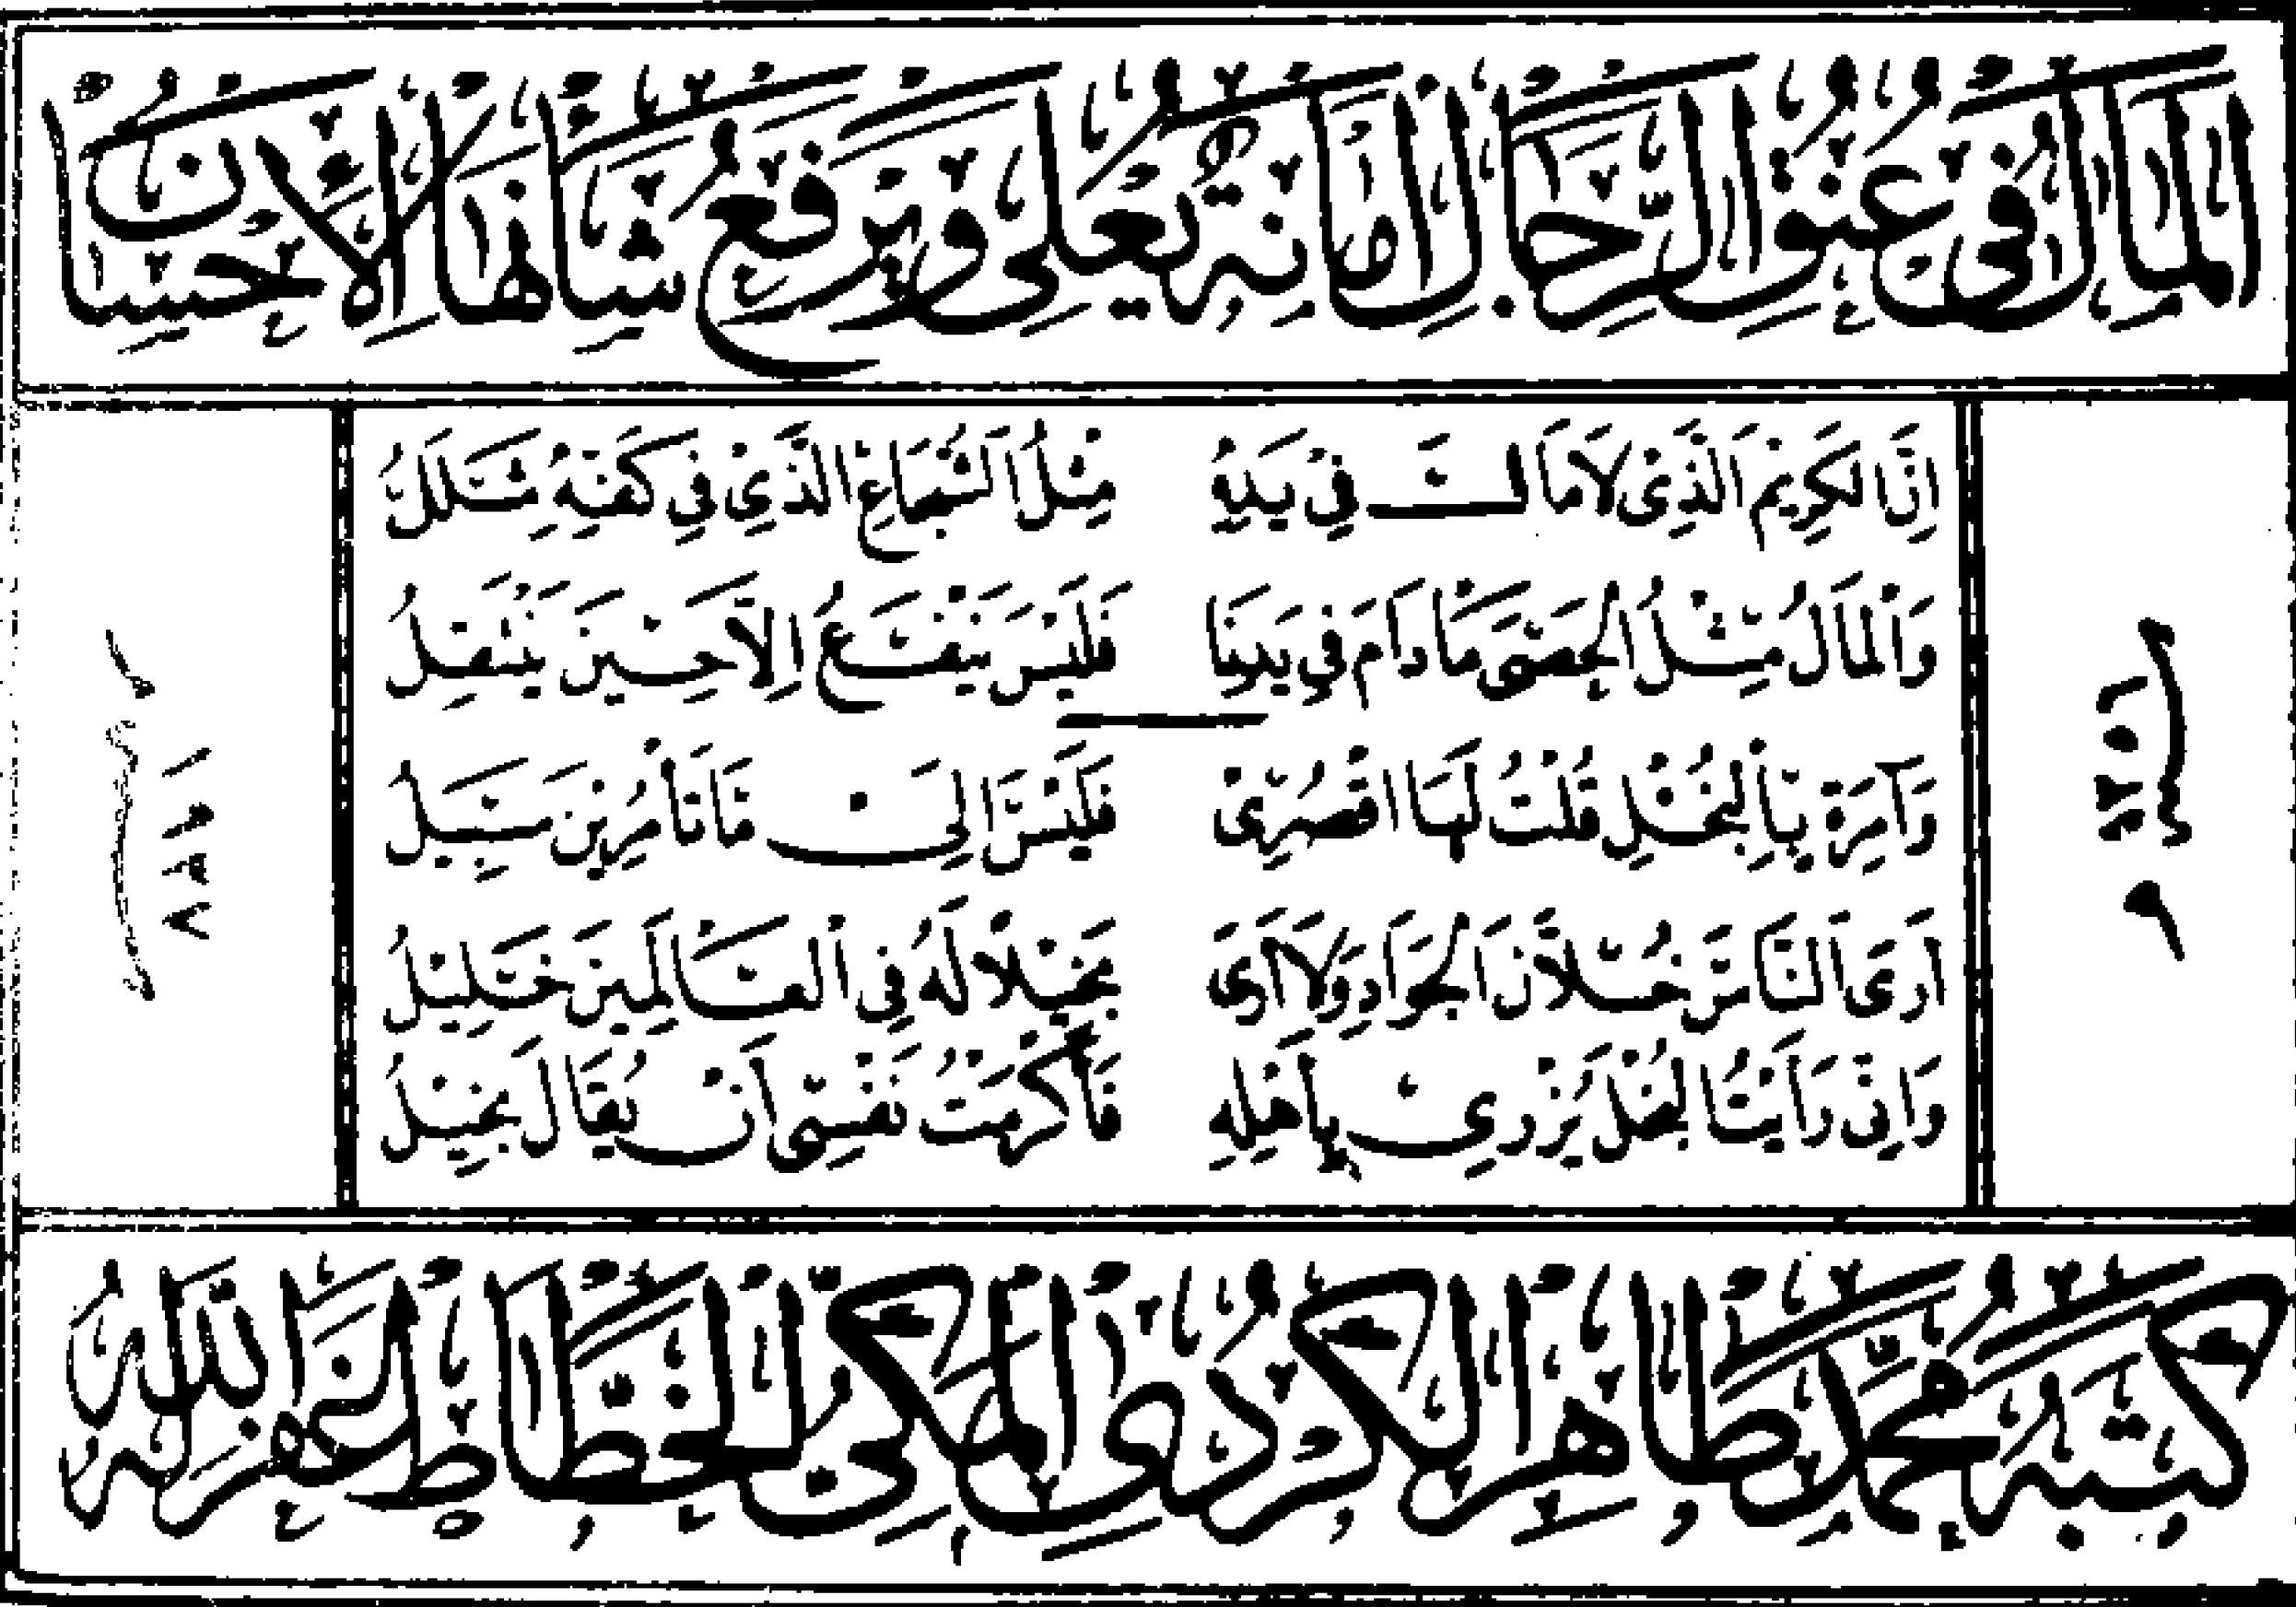 المال في عنق الرجال أمانة يعلي ويرفع شأنها الإحسان
إِنَّ الكَرِيمَ الَّذِي لَا مَالَ فِي يَدِهِ مِثْلُ الشُّجَاعِ الَّذِي فِي كَفِّهِ شَلَلُ
وَالْمَالُ مِثْلُ الْحَصَى مَا دَامَ فِي يَدِنَا فَلَيْسَ يَنْفَعُ إِلَّا حِينَ يَنْتَقِلُ
وَآمِرَةٍ بِالْبُخْلِ قُلْتُ لَهَا اقْصُرِي فَلَيْسَ إِلَى مَا تَأْمُرِينَ سَبِيلُ
أَرَى النَّاسَ خُلَّانَ الْجَوَادِ وَلَا أَرَى بَخِيلًا لَهُ فِي الْعَالَمِينَ خَلِيلُ
وَإِنِّي رَأَيْتُ الْبُخْلَ يُزْرِي بِأَهْلِهِ فَأَكْرَمْتُ نَفْسِي أَنْ يُقَالَ بَخِيلُ
كتبه محمد طاهر الكردي المكي الخطاط غفر الله له